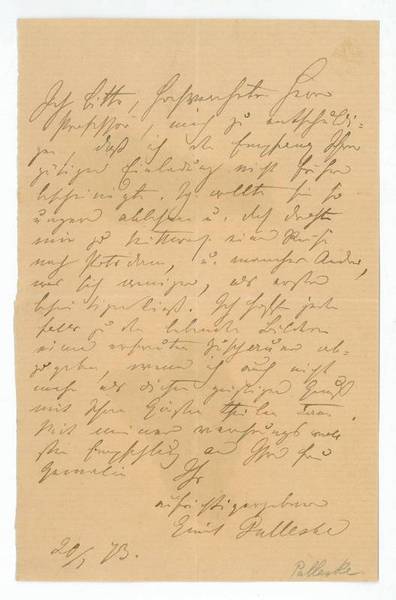 Ich bitte, hochverehrter Herr
Professor, mich zu entschuldi-
gen daß ich den Empfang Ihrer
gütigen Einladung nicht früher
bescheinigte. Ich wollte sie so
ungern ablehnen u. doch drohte
mir zu Mittwoch eine Reise
nach Potsdam, u. mancher Andre,
was sich weniger, als erstre
beseitigen ließ. Ich hoffe jeden
falls zu den lebenden Bildern
einen erfreuten Zuschauer ab-
zugeben, wenn ich auch nicht
mehr als diesen geistigen Genuß
mit Ihren Gästen theilen kann.
Mit meiner verehrungsvoll
sten Empfehlung an Ihre Frau
Gemalin Ihr
aufrichtigergebener
Emil Palleske
20/1 73.
Palleske